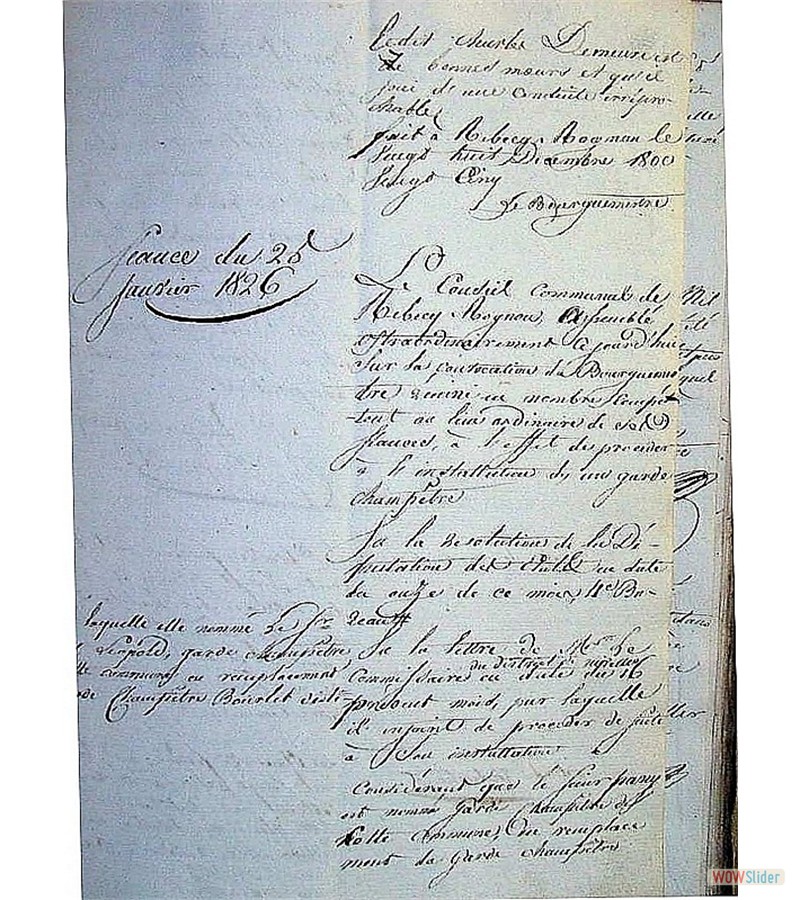 ledit Charles Demeure est
de bonnes mœurs et qu'il
joui d'une conduite irrépro-
chable
fait à Rebecq Rognon le
vingt huit Décembre 1800
vingt Cinq
Le Bourguemestre
Séance du 25
Janvier 1826
Le Conseil Communal de
Rebecq Rognon, assemblé
extraordinairement ce jourd'hui
sur la convocation du Bourguemes
tre réuni en nombre compé-
tent au lieu ordinaire de ses
séances, à l'effet de proceder
à l'installation d'un garde
champêtre
Vu la résolution de la Dé-
putation des états en date
du onze de ce mois, 4e Bu-
reau
laquelle elle nomme le Sr
Léopold, garde champêtre
commune en remplacement
de Champêtre Bourlet
Vu la lettre de Mr. le
Commissaire du district de nivelles
en date du 16
présent mois, par laquelle
il enjoint de proceder de suite
à son installation
Considérant que le sieur
est nommé garde champêtre de
cette Commune, en remplace
ment du garde champêtre
WOWSlider